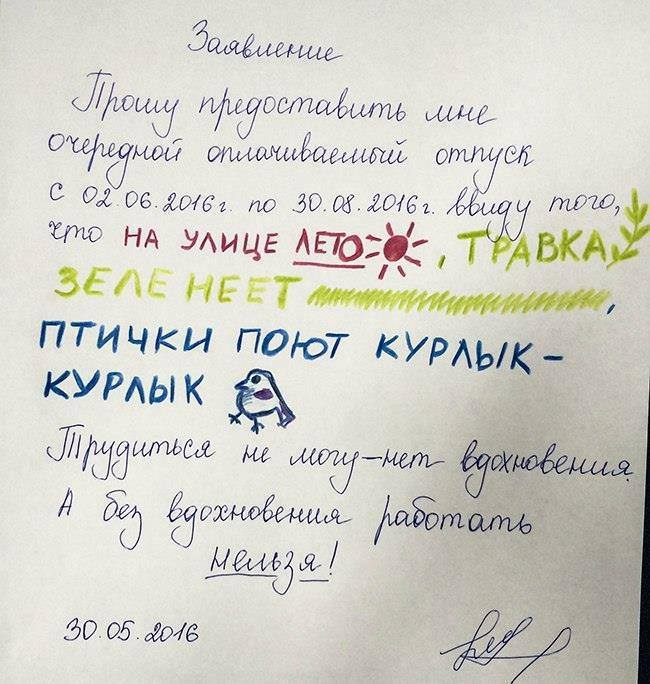 Заявление
Прошу предоставить мне
очередной оплачиваемый отпуск
с 02.06.2016г. по 30.08.2016г. ввиду того,
что НА УЛИЦЕ ЛЕТО, ТРАВКА
ЗЕЛЕНЕЕТ,
ПТИЧКИ ПОЮТ КУРЛЫК-
КУРЛЫК
Трудиться не могу-нет вдохновения.
А без вдохновения работать
нельзя!
30.05.2016